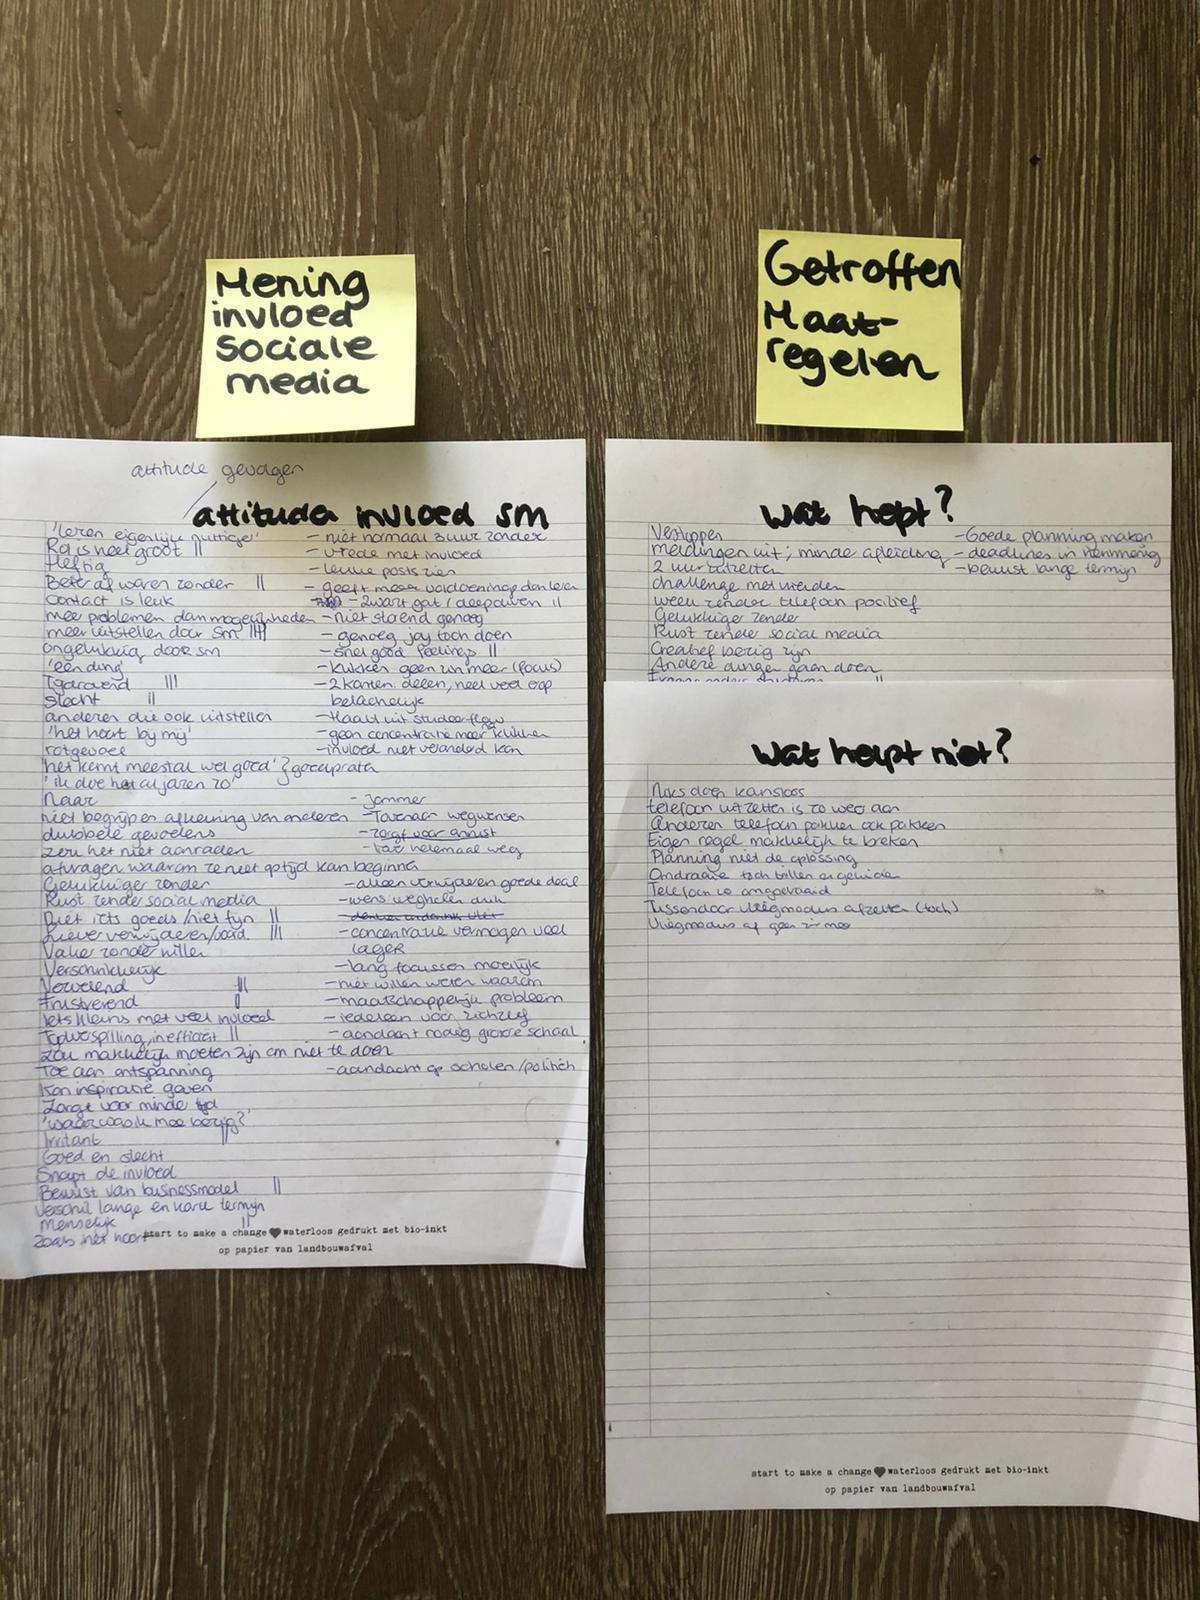 Mening
invloed
sociale
media
Getroffen
Maat-
regelen
attitude gevolgen
attitude invloed sm
'leren eigenlijk nuttiger'
Rol is heel groot ||
Heftig
Beter af waren zonder ||
Contact is leuk
meer problemen dan mogelijkheden
meer uitstellen door sm ||||
ongelukkig door sm
'één ding'
|||
slecht ||
anderen die ook uitstellen
'het hoort bij mij'
rotgevoel
'het komt meestal wel goed' } goedpraten
'ik doe het al jaren zo'
Naar
niet begrijpen afkeuring van anderen
dubbele gevoelens
zou het niet aanraden
afvragen waarom ze niet optijd kan beginnen
Gelukkiger zonder
Rust zonder social media
Niet iets goeds/niet fijn ||
Liever verwijderen/ |||
Vaker zonder willen
Verschrikkelijk
Vervelend |||
Frustrerend
Iets kleins met veel invloed
Tijdverspilling, inefficiënt ||
zou makkelijk moeten zijn om niet te doen
Toe aan ontspanning
Kan inspiratie geven
Zorgt voor minder tijd
'waar was ik mee bezig?'
Irritant ||
Goed en slecht
Snapt de invloed
Bewust van businessmodel ||
Verschil lange en korte termijn
Menselijk ||
Zoals het hoort
- niet normaal 3 uur zonder
- vrede met invloed
- leuke posts zien
- geeft meer voldoening dan leren
- zwart gat / ||
- niet storend genoeg
- genoeg toch doen
- snel good feelings ||
- klikken geen zin meer (focus)
- 2 kanten: delen, heel veel op
belachelijk
- Haalt uit studeer flow
- geen concentratie meer klikken
- invloed niet veranderd kan
- Jammer
- wegwensen
- zorgt voor onrust
- helemaal weg
- alleen verwijderen goede deal
- wens weghalen druk
- concentratie vermogen veel
lager
- lang focussen moeilijk
- niet willen weten waarom
- maatschappelijk probleem
- iedereen voor zichzelf
- aandacht nodig grote schaal
- aandacht op scholen/politiek
start to make a change ♥ waterloos gedrukt met bio-inkt
op papier van landbouwafval
wat helpt?
Verstoppen
meldingen uit; minder afleiding
2 uur uitzetten
challenge met vrienden
week zonder telefoon positief
Gelukkiger zonder
Rust zonder social media
Creatief bezig zijn
Andere dingen gaan doen
- Goede planning maken
- deadlines in
- bewust lange termijn
wat helpt niet?
Niks doen kansloos
telefoon uitzetten is zo weer aan
Anderen telefoon pakken ook pakken
Eigen regel makkelijk te breken
Planning niet de oplossing
Omdraaien toch trillen en geluiden
Telefoon is omgedraaid
Tussendoor vliegmodus afzetten (toch)
Vliegmodus af geen zin meer
start to make a change ♥ waterloos gedrukt met bio-inkt
op papier van landbouwafval